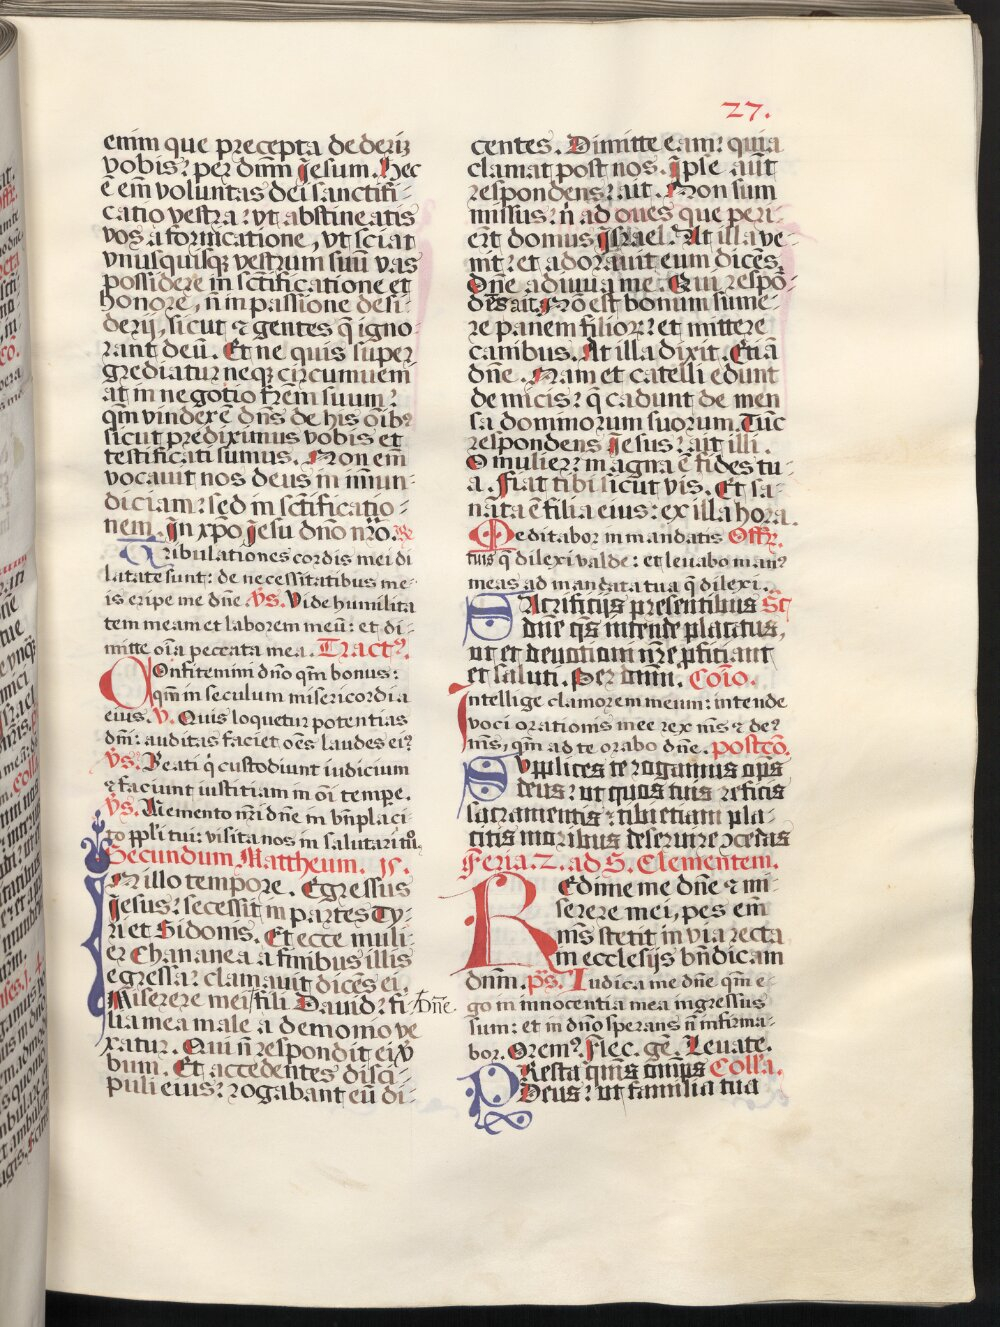 27.
enim que precepta dederiz
vobis: per dnm Jesum. Hec
ē em voluntas dei sanctifi-
catio vestra: vt abstineatis
vos a fornicatione, vt sciat
vnusquisq; vestrum suū vas
possidere in sctificatione et
honore, n̄ in passione desi-
derij, sicut ⁊ gentes q̄ igno-
rant deū. Et ne quis super
grediatur neq; circumueni-
at in negotio frēm suum:
qm vindex ē dns de his oīb9
sicut prediximus vobis et
testificati sumus. Non em
vocauit nos deus in īmun-
diciam: sed in sctificatio-
nem. Jn xpo Jesu dno nro.
Tribulationes cordis mei di
latate sunt: de necessitatibus me-
is eripe me dne Vs. Vide humilita
tem meam et laborem meū: et di-
mitte oīa peccata mea. Tract9.
Confitemini dno qm bonus:
qm in seculum misericordia
eius. V. Quis loquetur potentias
dni: auditas faciet oēs laudes ei9
Vs. Beati q̇ custodiunt iudicium
⁊ faciunt iustitiam in oī tempe.
Vs. Memento nri dne in bn̄placi-
to ppli tui: visita nos in salutari tuo.
Secundum Mattheum. 15.
Jn illo tempore. Egressus
Jesus: secessit in partes Ty-
ri et Sidonis. Et ecce muli-
er Chananea a finibus illis
egressa: clamauit dicēs ei.
Miserere mei fili Dauid: fi- dne.
lia mea male a demonio ve
xatur. Qui n̄ respondit ei v̄
bum. Et accedentes disci-
puli eius: rogabant eū di-
centes. Dimitte eam: quia
clamat post nos. Jpse aūt
respondens: ait. Non sum
missus: n̄ ad oues que peri-
erūt domus Jsrael. At illa ve-
nit: et adorauit eum dicēs,
Dne adiuua me. Qui respō-
dēs ait. Nō est bonum sume-
re panem filior: et mittere
canibus. At illa dixit. Etiā
dne. Nam et catelli edunt
de micis: q̄ cadunt de men
sa dominorum suorum. Tūc
respondens Jesus: ait illi.
O mulier: magna ē fides tu-
a. Fiat tibi sicut vis. Et sa-
nāta ē filia eius: ex illa hora.
Meditabor in mandatis Offr.
tuis q̄ dilexi valde: et leuabo man9
meas ad mandata tua q̄ dilexi.
Sacrificijs presentibus Sc̄
dne qs intende placatus,
ut et deuotioni nre pficiant
et saluti. Per dnm. Coīo.
Intellige clamorem meum: intende
voci orationis mee rex ms ⁊ de9
ms, qm ad te orabo dne. postcō.
Supplices te rogamus ops
deus: ut quos tuis reficis
sacramentis: tibi etiam pla-
citis moribus deseruire ↄcedas
Feria. 2. ad S. Clementem.
Redime me dne ⁊ mi-
serere mei, pes em
ms stetit in via recta
in ecclesijs bn̄dicam
dnm. ps. Iudica me dne qm e-
go in innocentia mea ingressus
sum: et in dno sperans n̄ infirma-
bor. Orem9. Flec. ge. Leuate.
Presta qms omps Colla.
Deus: ut familia tua